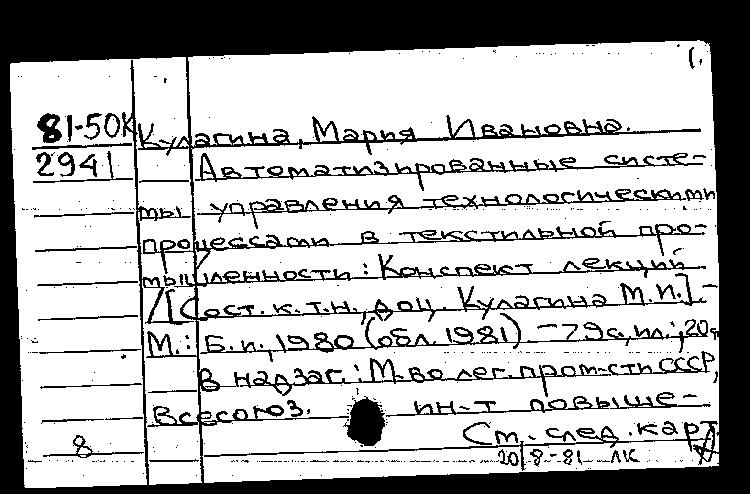 1.
81-50К Кулагина, Мария Ивановна.
2941 Автоматизированные систе-
мы управления технологическими
процессами в текстильной про-
мышленности: Конспект лекций
/[Сост. к.т.н., доц. Кулагина М.И.].-
М.: Б.и., 1980 (обл. 1981). - 79 с., ил.; 20
В надзаг.: М-во лег. пром-сти СССР,
Всесоюз. ин-т повыше-
См. след. карт
8
20/8-81 ЛК